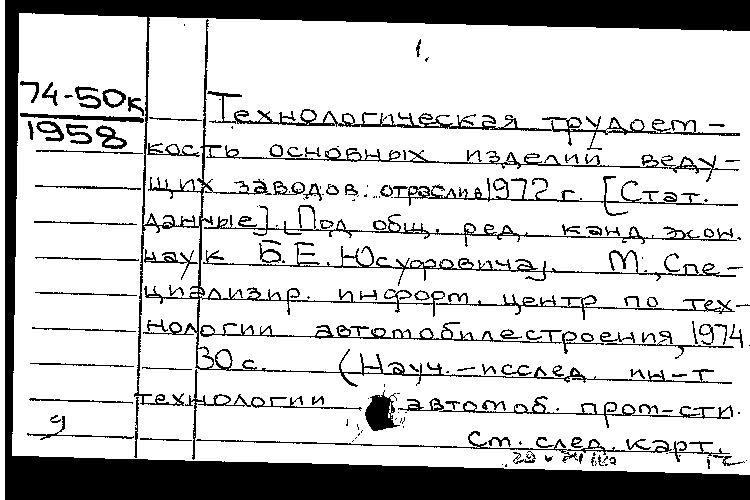 1.
74-50к
1958
Технологическая трудоем-
кость основных изделий веду-
щих заводов отрасли в 1972 г. [Стат.
данные]. [Под общ. ред. канд. экон.
наук Б.Е. Юсуфовича]. М., Спе-
циализир. информ. центр по тех-
нологии автомобилестроения, 1974.
30 с. (Науч.-исслед. ин-т
технологии автомоб. пром-сти.
См. след. карт.
9